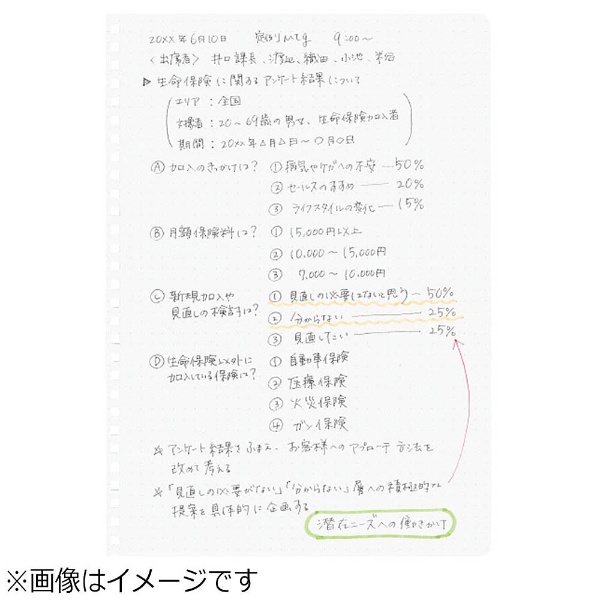 20XX年6月10日 定例Mtg 9:00〜
〈出席者〉 井口課長、渡辺、織田、小池、米谷
▷ 生命保険に関するアンケート結果について
エリア : 全国
対象者 : 20〜69歳の男女、生命保険加入者
期間 : 20XX年△月△日〜○月○日
Ⓐ 加入のきっかけは?
① 病気やケガへの不安 — 50%
② セールスのすすめ — 20%
③ ライフスタイルの変化 — 15%
Ⓑ 月額保険料は?
① 15,000円以上
② 10,000〜15,000円
③ 7,000〜10,000円
Ⓒ 新規加入や
見直しの検討は?
① 見直しの必要はないと思う — 50%
② 分からない — 25%
③ 見直したい — 25%
Ⓓ 生命保険以外に
加入している保険は?
① 自動車保険
② 医療保険
③ 火災保険
④ ガン保険
※ アンケート結果をふまえ、お客様へのアプローチ方法を
改めて考える
※「見直しの必要がない」「分からない」層への積極的な
提案を具体的に企画する
潜在ニーズへの働きかけ
※画像はイメージです